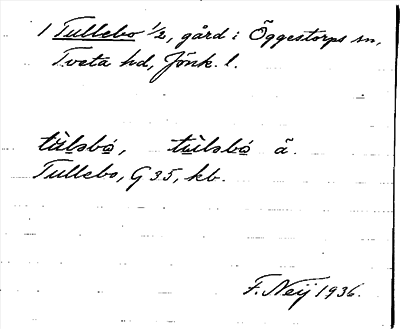 1 Tullebo 1/2, gård i Öggestorps sn,
Tveta hd, Jönk. l.
tùlsbo, tùlsbo ã.
Tullebo, G 35, kb.
F. Neij 1936.